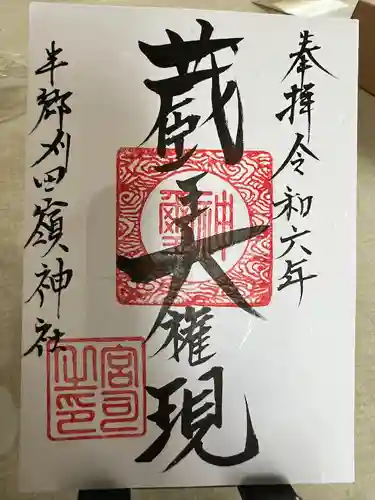 奉拝 令和六年
蔵王大権現
神璽
半郷刈田嶺神社
宮司之印